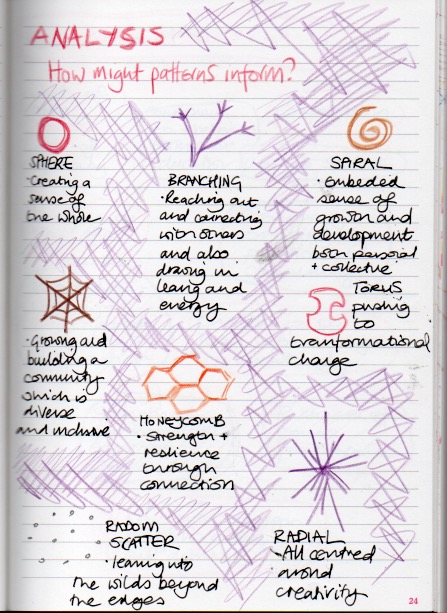 ANALYSIS
How might patterns inform?
SPHERE
·Creating a
sense of
the whole
BRANCHING
·Reaching out
and connecting
with others
and also
drawing in
leang and
energy
SPIRAL
·Embeded
sense of
growth and
development
both personal
+ collective
·Growing and
building a
community
which is
diverse
and inclusive
TORUS
pushing
to
transformational
change
HONEYCOMB
·Strength +
resilience
through
connection
RADOM
SCATTER
·leaning into
the wilds beyond
the edges
RADIAL
-All centred
around
creativity
24